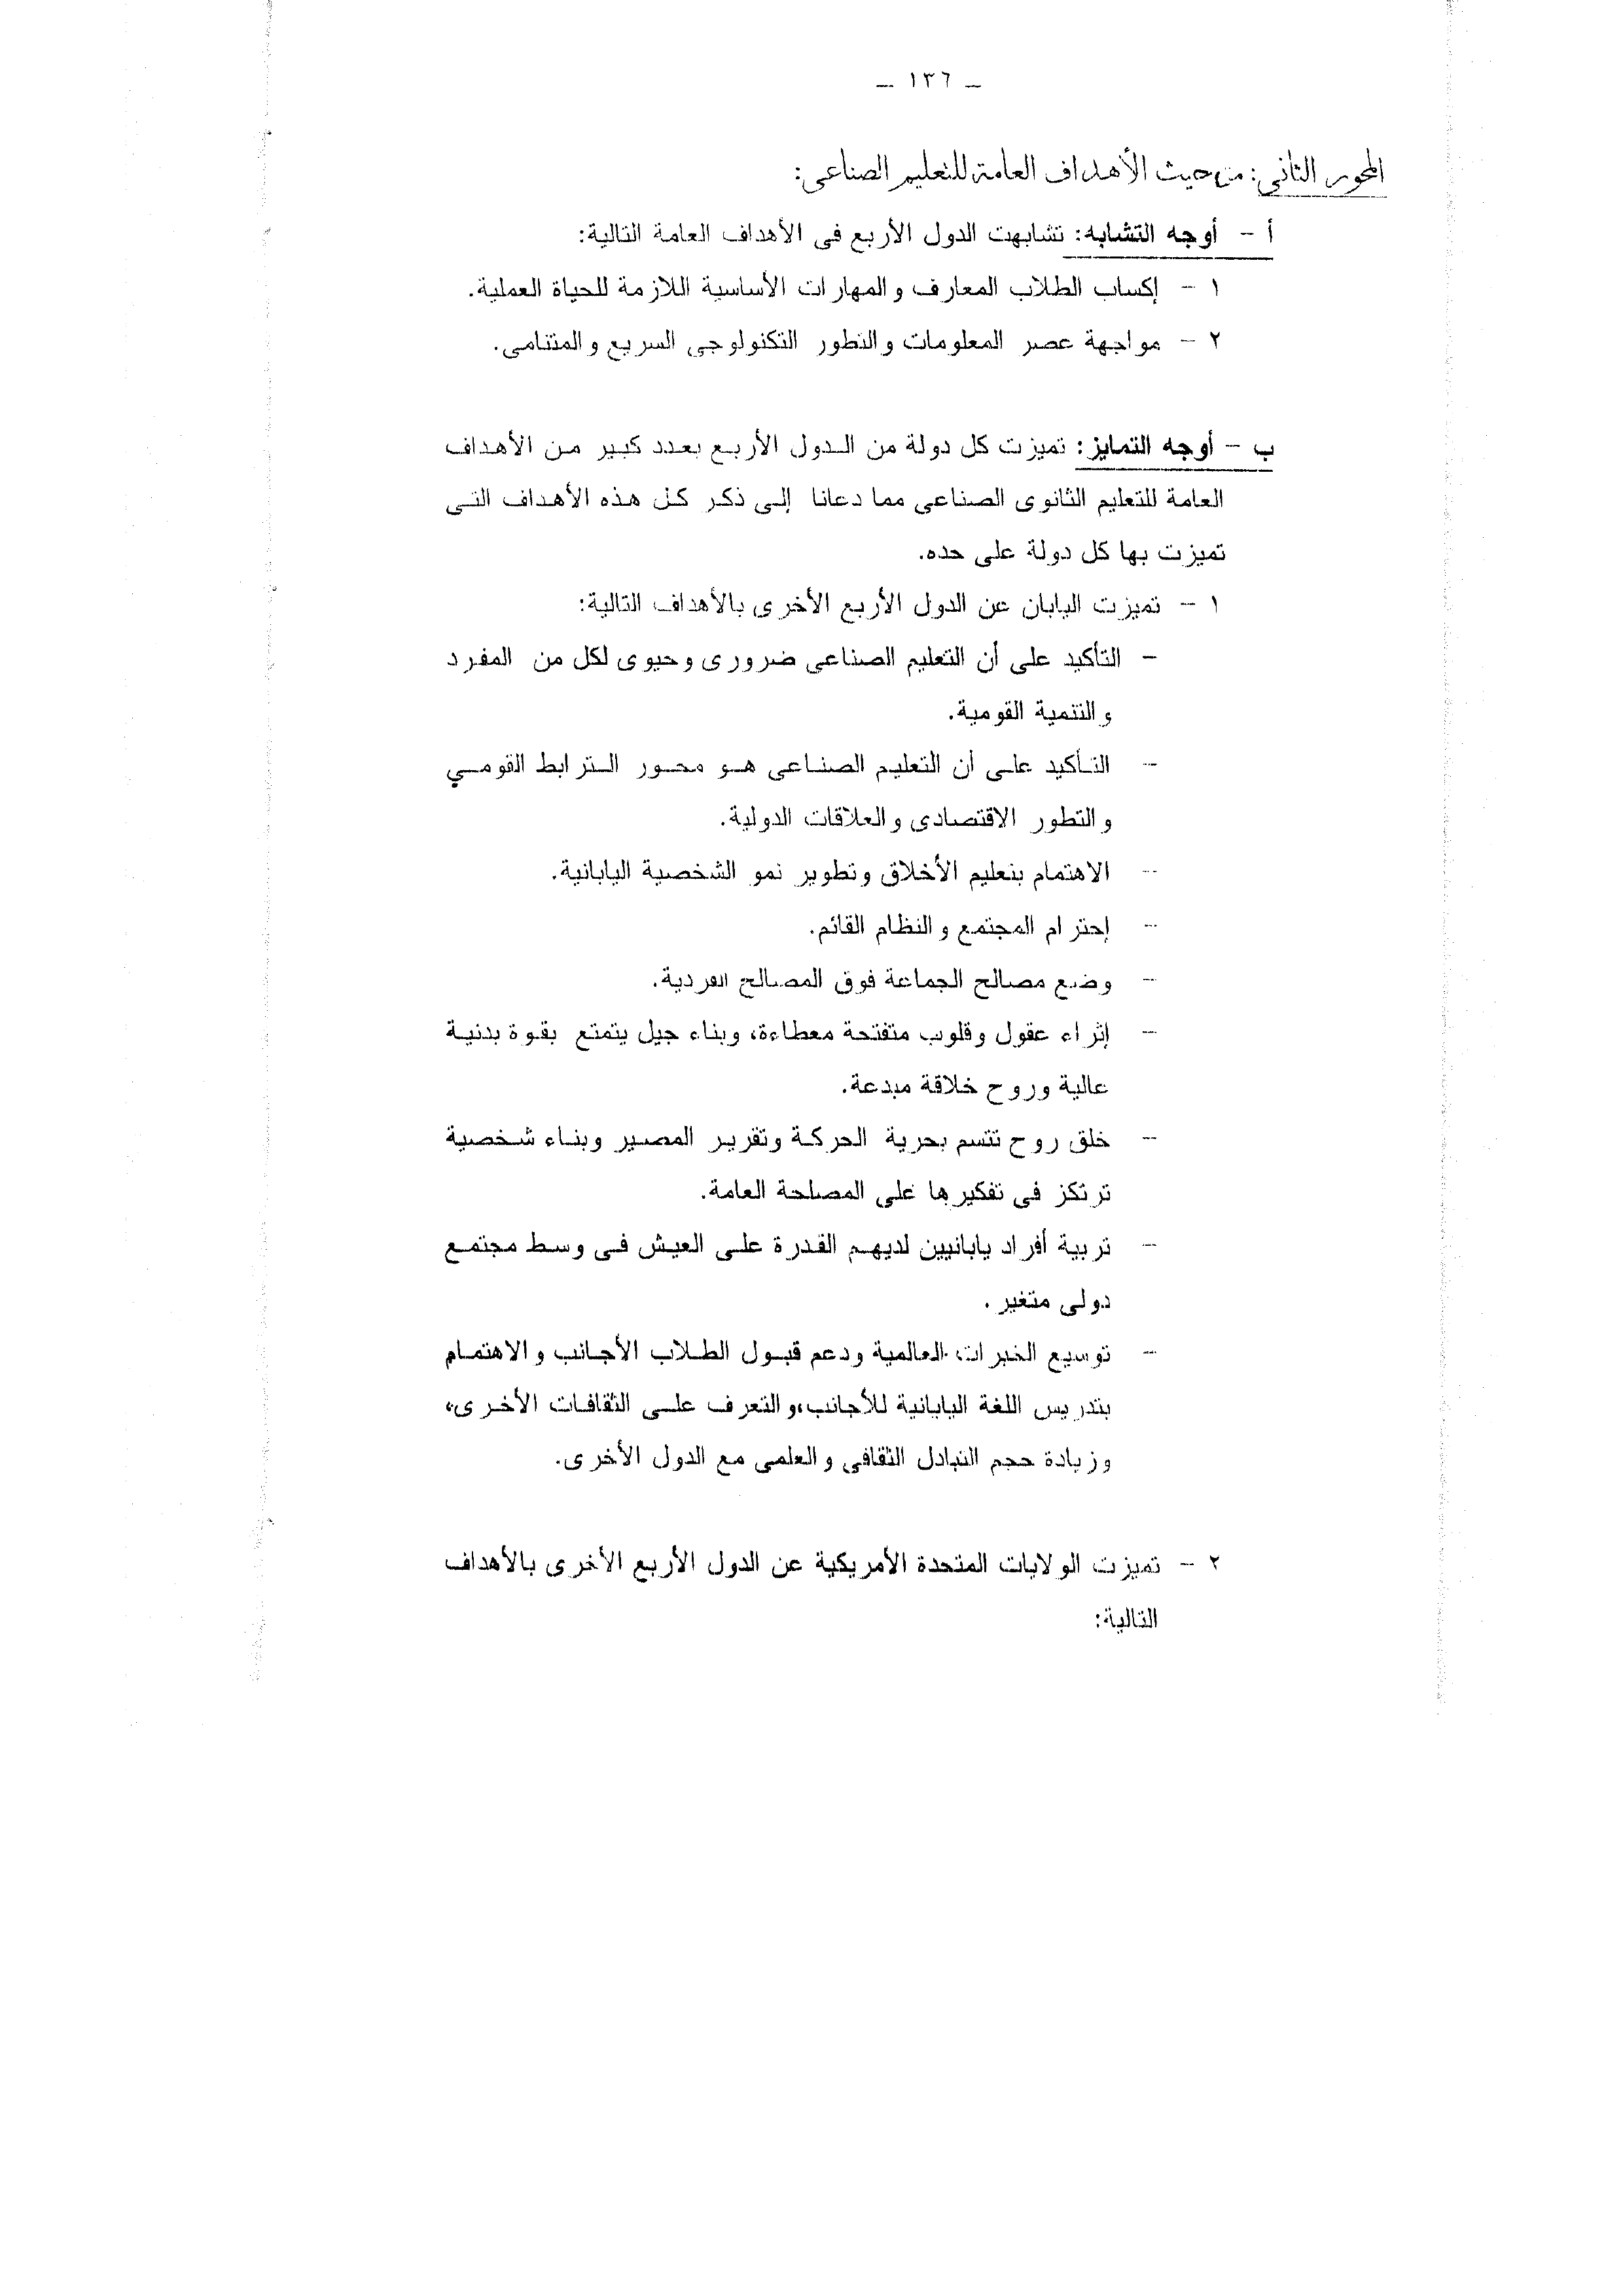 – ١٣٦ –
المحور الثاني: من حيث الأهداف العامة للتعليم الصناعى:
أ – أوجه التشابه: تشابهت الدول الأربع فى الأهداف العامة التالية:
١ – إكساب الطلاب المعارف والمهارات الأساسية اللازمة للحياة العملية.
٢ – مواجهة عصر المعلومات والتطور التكنولوجى السريع والمتنامى.
ب – أوجه التمايز: تميزت كل دولة من الدول الأربع بعدد كبير من الأهداف
العامة للتعليم الثانوى الصناعى مما دعانا إلى ذكر كل هذه الأهداف التى
تميزت بها كل دولة على حده.
١ – تميزت اليابان عن الدول الأربع الأخرى بالأهداف التالية:
– التأكيد على أن التعليم الصناعى ضرورى وحيوى لكل من المفرد
والتنمية القومية.
– التأكيد على أن التعليم الصناعى هو محور الترابط القومي
والتطور الاقتصادى والعلاقات الدولية.
– الاهتمام بتعليم الأخلاق وتطوير نمو الشخصية اليابانية.
– إحترام المجتمع والنظام القائم.
– وضع مصالح الجماعة فوق المصالح الفردية.
– إثراء عقول وقلوب متفتحة معطاءة، وبناء جيل يتمتع بقوة بدنية
عالية وروح خلاقة مبدعة.
– خلق روح تتسم بحرية الحركة وتقرير المصير وبناء شخصية
ترتكز فى تفكيرها على المصلحة العامة.
– تربية أفراد يابانيين لديهم القدرة على العيش فى وسط مجتمع
دولى متغير .
– توسيع الخبرات العالمية ودعم قبول الطلاب الأجانب والاهتمام
بتدريس اللغة اليابانية للأجانب،والتعرف على الثقافات الأخرى،
وزيادة حجم التبادل الثقافى والعلمى مع الدول الأخرى.
٢ – تميزت الولايات المتحدة الأمريكية عن الدول الأربع الأخرى بالأهداف
التالية: